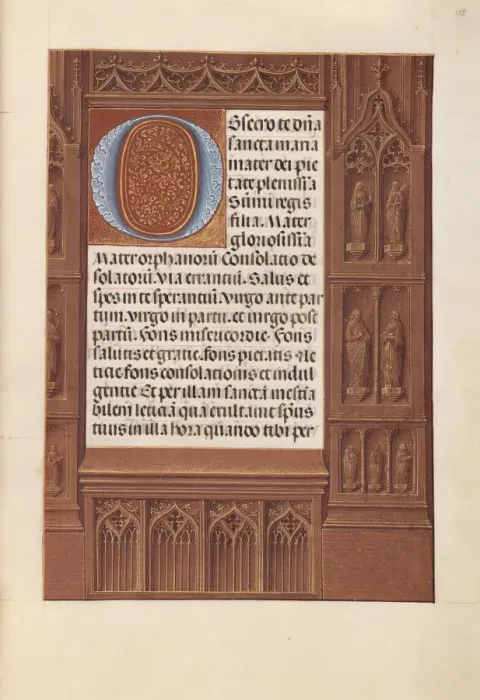 O Bsecro te dn̄a
sancta maria
mater dei pie
tate plenissīa
Sūmi regis
filia. Mater
gloriosissīa
Mater orphanorū Consolatio de
solatorū. Via errantiū. Salus et
spes in te sperantiū. virgo ante par
tum. virgo in partu. et virgo post
partū. Fons misericordie. Fons
salutis et gratie. fons pietatis et le
ticie. fons consolationis et indul
gentie Et per illam sanctā inestīa
bilem leticiā qua exultauit sp̄us
tuus in illa hora quando tibi per